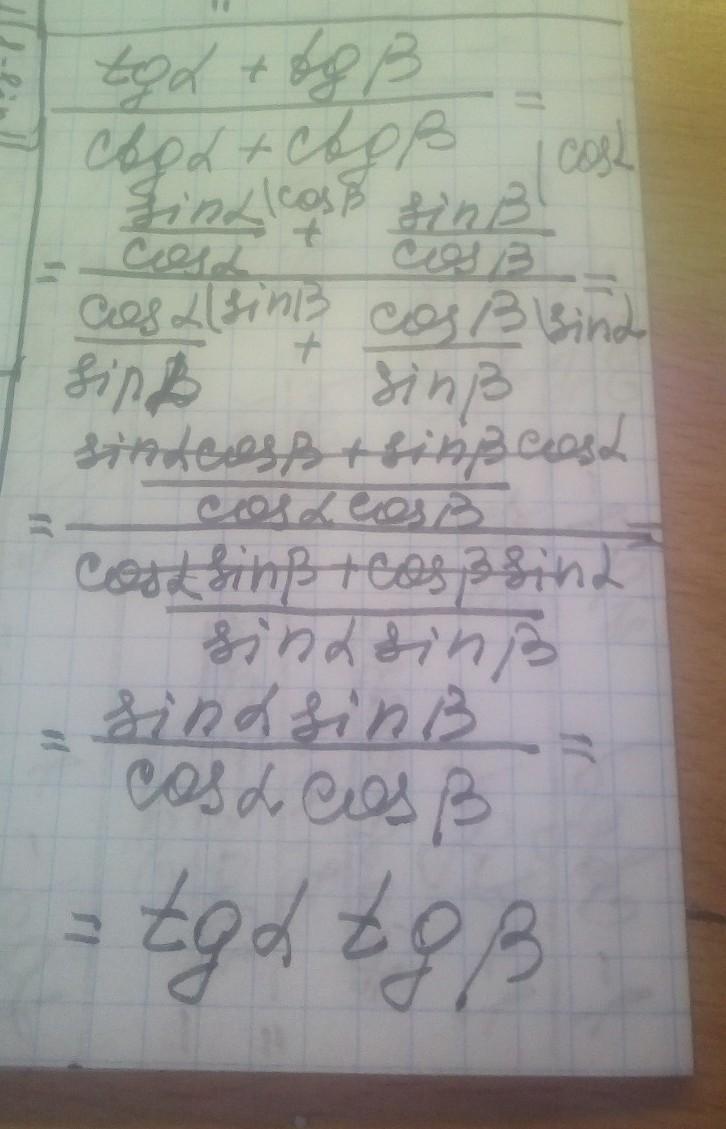 tgα + tgβ =
ctgα + ctgβ
= sinα\cosβ + sinβ\cosα =
cosα cosβ
cosα\sinβ + cosβ\sinα
sinα sinβ
= sinαcosβ + sinβcosα =
cosαcosβ
cosαsinβ + cosβsinα
sinαsinβ
= sinαsinβ =
cosαcosβ
= tgα tgβ